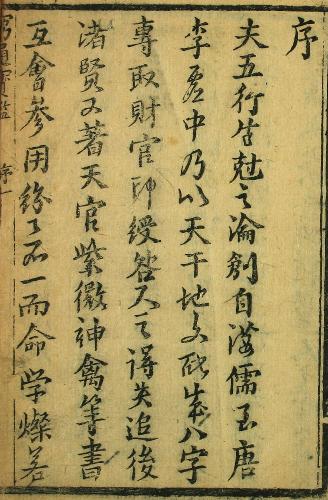 序
夫五行生尅之論創自漢儒至唐
李虛中乃以天干地支配成八字
專取財官印綬論人之得失追後
諸賢又著天官紫微神禽等書
互會參用紛々不一而命学燦若
窮通寶鑑 序 一